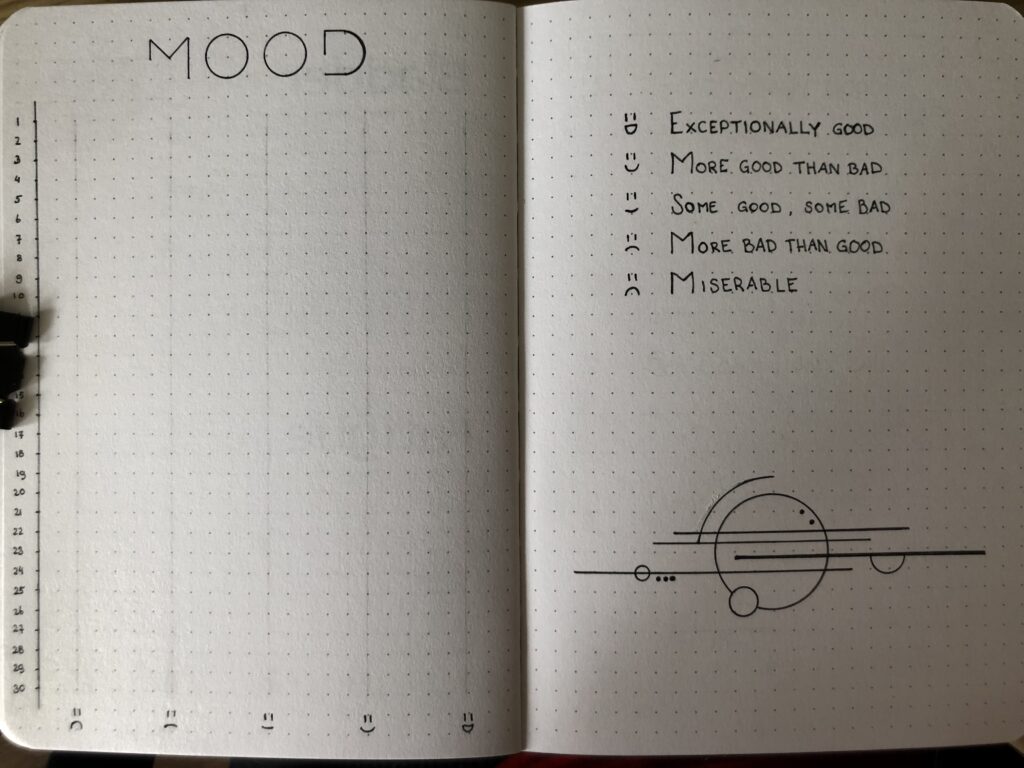 MOOD
1
2
3
4
5
6
7
8
9
10
15
16
17
18
19
20
21
22
23
24
25
26
27
28
29
30
=D EXCEPTIONALLY GOOD
=) MORE GOOD THAN BAD
=| SOME GOOD, SOME BAD
=( MORE BAD THAN GOOD
D= MISERABLE